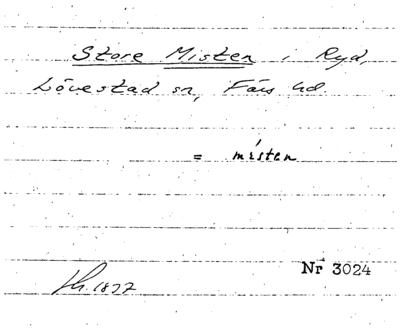 Store Misten i Ryd,
Lövestad sn, Färs hd.
= místen
Nr 3024
1877